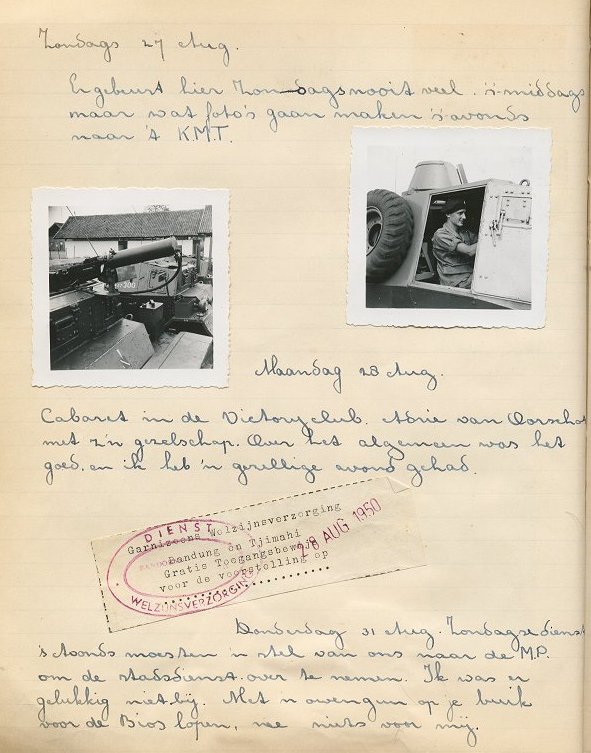 Zondags 27 Aug.
Er gebeurt hier Zondags nooit veel. 's-middags
maar wat foto's gaan maken 's-avonds
naar 't K.M.T.
Maandag 28 Aug.
Cabaret in de Victoryclub. Adrie van Oorschot
met z'n gezelschap. Over het algemeen was het
goed, en ik heb 'n gezellige avond gehad.
DIENST
Garnizoens Welzijnsverzorging
Bandung en Tjimahi
Gratis Toegangsbewijs
voor de voorstelling op
28 AUG 1950
WELZIJNSVERZORGING
Donderdag 31 Aug. Zondagsedienst
's Avonds moesten 'n stel van ons naar de M.P.
om de stadsdienst over te nemen. Ik was er
gelukkig niet bij. Met 'n owengun op je buik
voor de Bios lopen, nee niets voor mij.